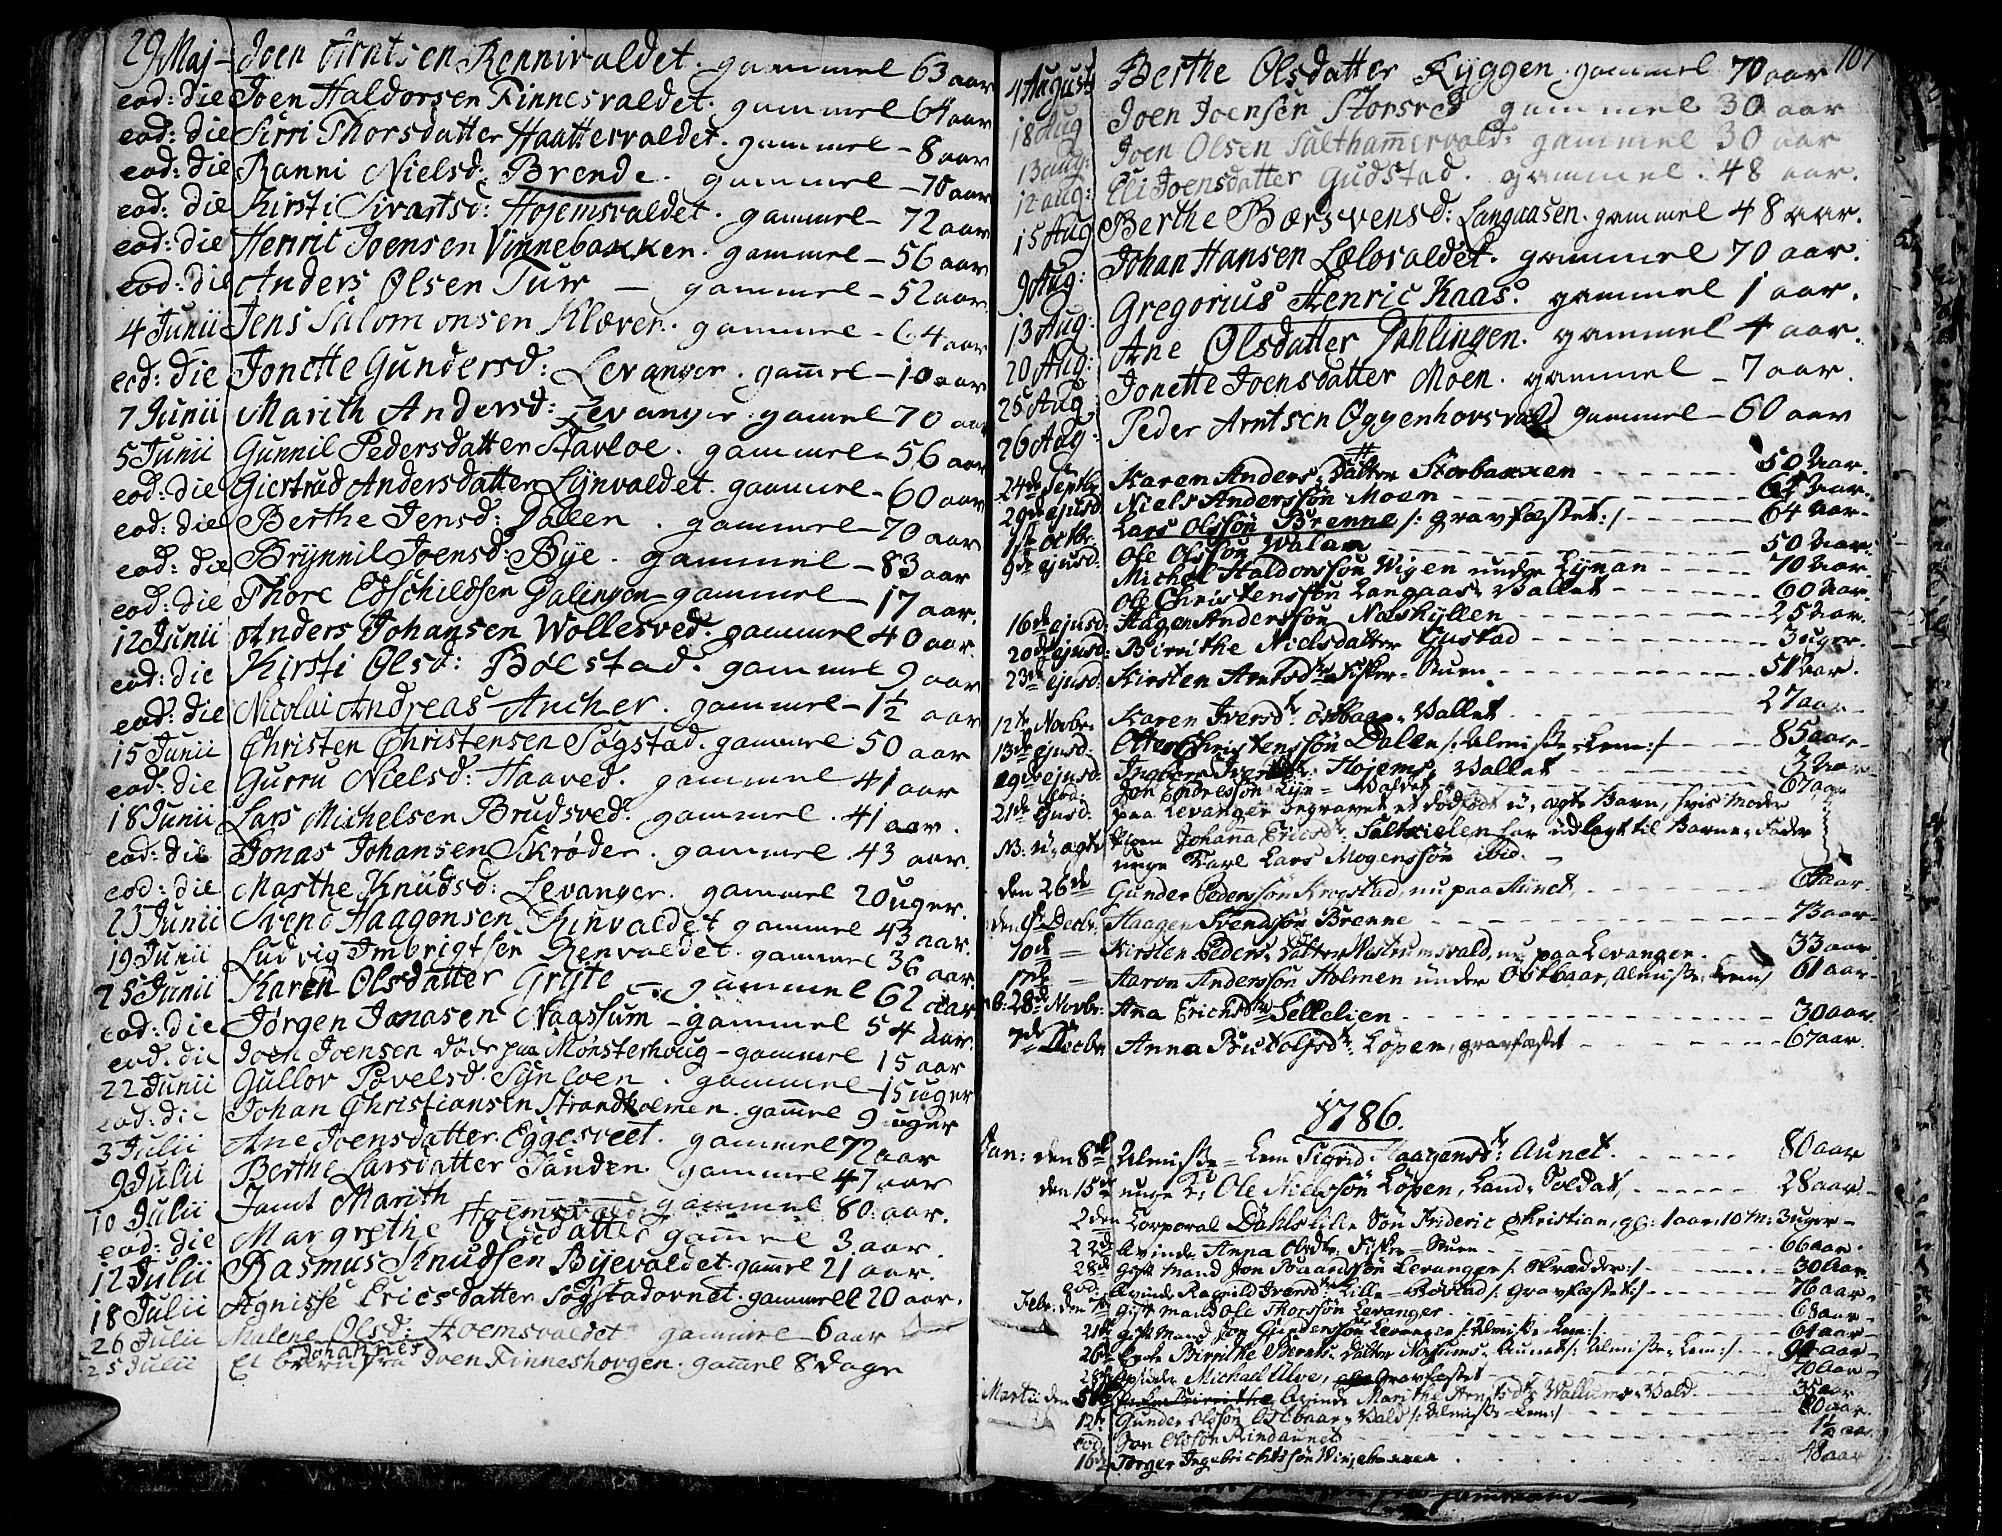 29 Maj Joen Arntsen Rennivaldet. gammel 63 aar
eod: die Joen Haldorsen Finnesvaldet. gammel 64 aar
eod: die Sirri Thorsdatter Haattervaldet. gammel - 8 aar
eod: die Ranni Nielsd: Brende. gammel - 70 aar
eod: die Kirsti Sivartsd: Hojemsvaldet. gammel - 72 aar
eod: die Henric Joensen Vinnebakken. gammel - 56 aar
eod: die Anders Olsen Tuw - gammel - 52 aar
4 Junii Jens Salomonsen Klæver. gammel - 64 aar
eod: die Jonette Gundersd: Levanger. gam̄el - 10 aar
7 Junii Marith Andersd: Levanger. gamel 70 aar
5 Junii Gunnil Pedersdatter Stavloe. gammel - 56 aar
eod: die Giertrud Andersdatter Lynvaldet. gammel - 60 aar
eod: die Berthe Jensd: Dallen. gammel - 70 aar
eod: die Brynnil Joensd: Bye. gammel - 83 aar
eod: die Thore Edschildsen Dalingen - gammel - 17 aar.
12 Junii Anders Johansen Wollesved. gammel 40 aar.
eod: die Kirsti Olsd: Bolstad. gammel 9 aar
eod: die Nicolai Andreas Ancher. gammel - 1½ aar
15 Junii Christen Christensen Søgstad. gammel 50 aar
eod: die Gurru Nielsd: Haaved. gammel 41 aar
18 Junii Lars Michelsen Brudsved. gammel. 41 aar.
eod: die Jonas Johansen Skrøder. gammel 43 aar.
eod: die Marthe Knudsd: Levanger. gammel 20 uger.
23 Junii Svend Haagonsen Rinvaldet gammel 43 aar.
19 Junii Ludvig Imbrigtsen Renvaldet. gammel 36 aar.
25 Junii Karen Olsdatter Gryte - gammel 62 aar
eod: die Jørgen Jonasen Naassum - gammel 54 aar.
eod: die Joen Joensen døde paa Mønsterhoug - gammel 15 aar
22 Junii Gullov Povelsd. Synloen. gammel - 15 uger
eod: die Johan Christiansen Strandholmen. gam̄el 9 uger
3 Julii Ane Joensdatter. Eggesveet. gammel 72 aar
9 Julii Berthe Larsdatter Sanden. gammel 47 aar
10 Julii Jamt Marith Hoemsvald gammel 80 aar.
eod: die Margrethe Olsdatter gam̄el 3 aar.
12 Julii Rasmus Knudsen Byevaldet. gam̄el 21 aar.
18 Julii Agnisse Ericsdatter Søgstadovnet. gammel 20 aar.
26 Julii Malene Olsd: Hoemsvaldet gammel 6 aar
Johannes
25 Julii Et barn fra Joen Finneshovgen. gam̄el 8 dage
107
4 August Berthe Olsdatter Ryggen. gammel 70 aar
18 Aug Joen Joensen Storsved gammel 30 aar
13 aug: Joen Olsen Salthammervald: gammel 30 aar
12 aug: Eli Joensdatter Gudstad. gammel. 48 aar.
15 Aug Berthe Bærsvensd: Langaasen. gammel 48 aar.
9 Aug: Johan Hansen Lælovaldet. gammel 70 aar.
13 Aug: Gregorius Henric Kaas. gammel 1 aar.
20 Aug: Ane Olsdatter Dahlingen. gammel 4 aar.
25 Aug: Jonette Joensdatter Moen. gammel - 7 aar.
26 Aug: Peder Arntsen Oggenhovsvald gammel - 60 aar
24de Septbr Karen Anders, Datter Storbakken 50 Aar.
29de ejusd Niels Anderssøn Moen
1ste octbr. Lars Olssøn Brenne /: gravfæstet :/ 64 Aar
9de ejusd: Ole Olssøn Walan 50 Aar
Michel Haldorssøn Wigen under Lynan 70 Aar
Ole Christenssøn Langaas-Vallet 60 Aar.
16de ejusd Hagen Anderssøn Næshyllen 25 Aar.
20de ejusd: Birrithe Nielsdatter Gustad 3 uger.
23de ejusd: Kirsten Arntsdtr Fisker-Stuen 51 Aar.
12te Novbr. Karen Iversdtr: østbaar-Vallet 27 aar
13de ejusd. Christenssøn Dalen /: Almisse-Lem :/ 85 aar
19de ejusd. Ingber Hojems, Vallet 3 Aar
eod: Jon Endressøn Lyn-Waldet 67 aar
21de Ejusd. paa Levanger begravet et dødfødt u-ægte Barn, hvis Moder
NB: u-ægte Johanna Ericsdtr: Salthielen har udlagt til Barne-Fader
unge Karl Lars Mogenssøn ibid.
den 26de Gunder Pederssøn Krogstad, nu paa
den 9de Decbr. Haagen Svendssøn Brenne 73 aar
10de Kirsten Peders-datter Næstrumsvald, nu paa Levanger. 33 aar
17de Aaron Anderssøn Holmen under Østbaar, Almisse-Lem/ 61 aar
28de Novbr: Ana Erichsdtr Sellelien 30 aar.
7de Decbr Anna Botolfsdtr: Lopen, gravfæstet 67 aar.
1786.
Jan: den 8de Almisse-Lem Sigrid Haagensdtr: Aunet. 80 aar
den 15de unge K: Ole Nielssøn Lopen, Land-Soldat, 28 aar
2den Corporal Dahls lille Søn Frideric Christian, gl: 1 aar, 10 M: 3 uger
22de Qvinde Anna Olsdtr: Fisker-Stuen 66 aar.
28de gift Mand Jon Levanger /: Skrædder :/ 30 Aar
eod: Qvinde Ragnild Iversdtr Lille-Røstad /: Gravfæstet :/ 76 aar
Febr: den 7de Gift Mand Ole Thorssøn Levanger. 68 aar
21de gift Mand Jon Gunderssøn Levanger /: Almisse-Lem :/ 61 aar
26de Enke Birrithe Bernts-datter Næssums-Aunet /: Almisse-Lem :/
28de Michael Ulve, gravfæstet 70 aar
Martii den 5te Qvinde Marithe Arntsdtr Wallums-Vald. 35 aar
12te Gunder Olssøn Østbaar-Vald /: Almisse-Lem :/ 80 aar
eod: Jon Olssøn Rindaunet 1½ aar
16de Torger Ingebrichtssøn Winjehannen 48 aar